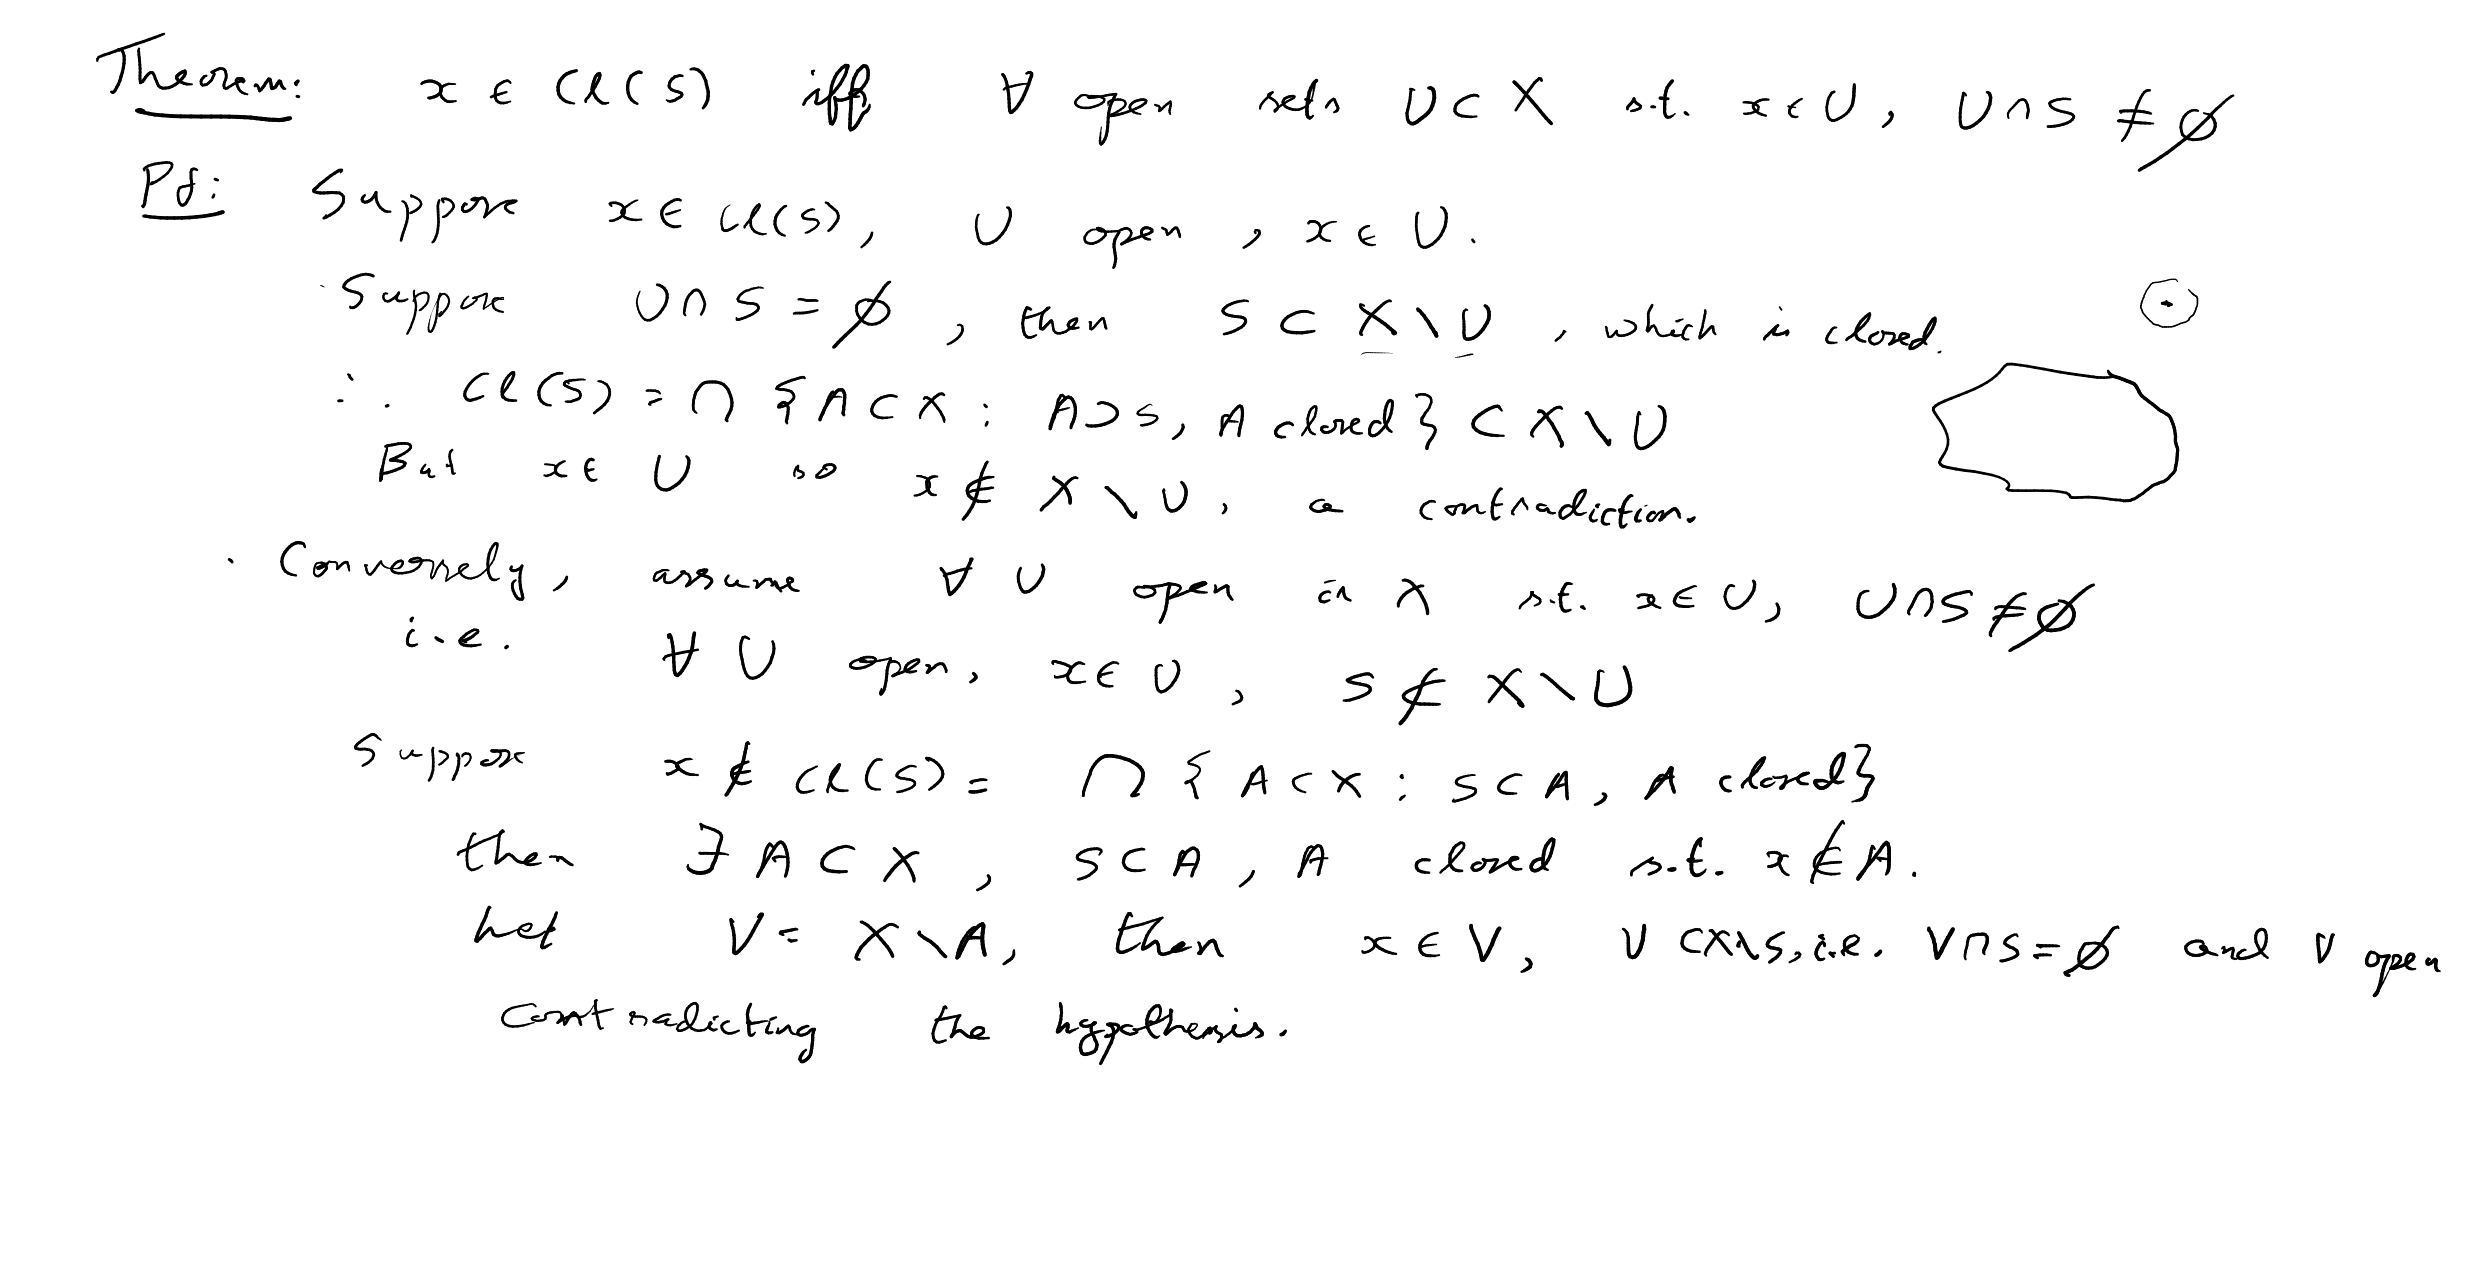 Theorem: x ∈ Cl(S) iff ∀ open sets U ⊂ X s.t. x ∈ U, U ∩ S ≠ ∅
Pf: Suppose x ∈ Cl(S), U open, x ∈ U.
Suppose U ∩ S = ∅, then S ⊂ X \ U, which is closed.
∴ Cl(S) = ∩ {A ⊂ X : A ⊃ S, A closed} ⊂ X \ U
But x ∈ U so x ∉ X \ U, a contradiction.
Conversely, assume ∀ U open in X s.t. x ∈ U, U ∩ S ≠ ∅
i.e. ∀ U open, x ∈ U, S ⊄ X \ U
Suppose x ∉ Cl(S) = ∩ {A ⊂ X : S ⊂ A, A closed}
then ∃ A ⊂ X, S ⊂ A, A closed s.t. x ∉ A.
Let V = X \ A, then x ∈ V, V ⊂ X \ S, i.e. V ∩ S = ∅ and V open
contradicting the hypothesis.